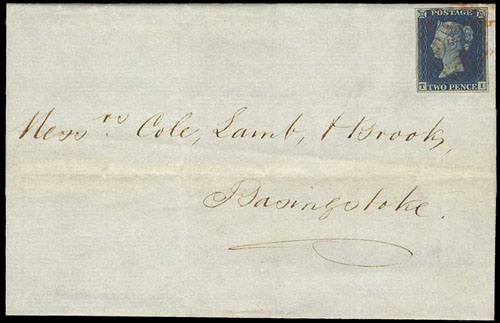 POSTAGE
TWO PENCE
Messrs. Cole, Lamb, & Brook,
Basingstoke.